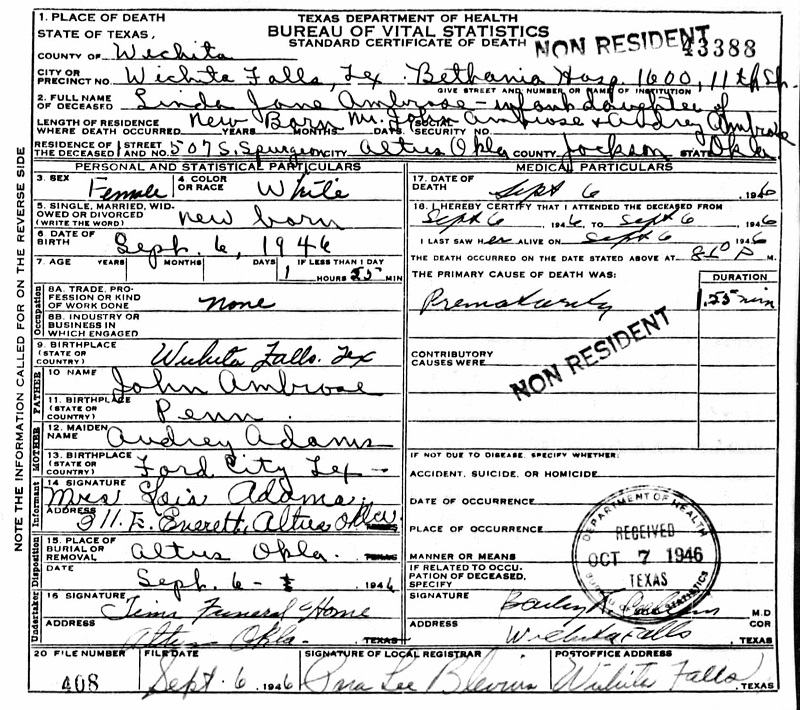 1. PLACE OF DEATH
STATE OF TEXAS,
TEXAS DEPARTMENT OF HEALTH
BUREAU OF VITAL STATISTICS
STANDARD CERTIFICATE OF DEATH
NON RESIDENT 43388
COUNTY OF Wichita
CITY OR PRECINCT NO. Wichita Falls, Tex. Bethania Hosp. 1600, 11th St.
GIVE STREET AND NUMBER OR NAME OF INSTITUTION
2. FULL NAME OF DECEASED Linda Jane Ambrose - infant daughter of
LENGTH OF RESIDENCE WHERE DEATH OCCURRED New Born YEARS MONTHS DAYS SOCIAL SECURITY NO. Mr. John Ambrose & Audrey Ambrose
RESIDENCE OF THE DECEASED STREET AND NO. 507 S. Spurgeon CITY Altus Okla COUNTY Jackson STATE Okla
PERSONAL AND STATISTICAL PARTICULARS
3. SEX Female 4. COLOR OR RACE White
5. SINGLE, MARRIED, WIDOWED OR DIVORCED (WRITE THE WORD) new born
6. DATE OF BIRTH Sept. 6, 1946
7. AGE YEARS MONTHS DAYS IF LESS THAN 1 DAY
1 HOURS 55 MIN
Occupation
8A. TRADE, PROFESSION OR KIND OF WORK DONE none
8B. INDUSTRY OR BUSINESS IN WHICH ENGAGED
9. BIRTHPLACE (STATE OR COUNTRY) Wichita Falls. Tex
FATHER
10 NAME John Ambrose
11. BIRTHPLACE (STATE OR COUNTRY) Penn.
MOTHER
12. MAIDEN NAME Audrey Adams
13. BIRTHPLACE (STATE OR COUNTRY) Ford City Tex -
Informant
14 SIGNATURE Mrs Lois Adams
ADDRESS 311 E. Everett, Altus Okla. TEXAS
Undertaker Disposition
15. PLACE OF BURIAL OR REMOVAL Altus Okla. TEXAS
DATE Sept. 6 - 1946
16 SIGNATURE Tims Funeral Home
ADDRESS Altus Okla. TEXAS
MEDICAL PARTICULARS
17. DATE OF DEATH Sept 6 1946
18. I HEREBY CERTIFY THAT I ATTENDED THE DECEASED FROM
Sept 6, 1946, TO Sept 6, 1946
I LAST SAW Her ALIVE ON Sept 6 1946
THE DEATH OCCURRED ON THE DATE STATED ABOVE AT 8:10 P M.
THE PRIMARY CAUSE OF DEATH WAS: DURATION
Prematurity 1.55 min
NON RESIDENT
CONTRIBUTORY CAUSES WERE
IF NOT DUE TO DISEASE, SPECIFY WHETHER:
ACCIDENT, SUICIDE, OR HOMICIDE
DATE OF OCCURRENCE
PLACE OF OCCURRENCE
MANNER OR MEANS
IF RELATED TO OCCUPATION OF DECEASED, SPECIFY
DEPARTMENT OF HEALTH
RECEIVED
OCT 7 1946
TEXAS
BUREAU OF VITAL STATISTICS
SIGNATURE M.D
ADDRESS Wichita Falls COR , TEXAS
20 FILE NUMBER FILE DATE SIGNATURE OF LOCAL REGISTRAR POSTOFFICE ADDRESS
408 Sept. 6 1946 Lee Blevins Wichita Falls, TEXAS
NOTE THE INFORMATION CALLED FOR ON THE REVERSE SIDE